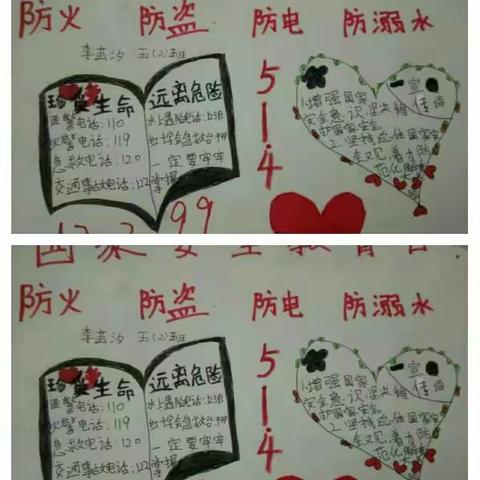 防火 防盗 防电 防溺水
李茁汐 五(2)班
珍爱生命
匪警电话:110
火警电话:119
急救电话:120
交通事故电话:122
远离危险
水上遇险电话:12395
红十字会急救台:999
一定要牢牢
掌握
5 1 4
1.增强国家
安全意识,坚决维
护国家安全
2.坚持总体国家安
全观,着力防
范化
宣传墙
99
国家安全教育日
防火 防盗 防电 防溺水
李茁汐 五(2)班
珍爱生命
匪警电话:110
火警电话:119
急救电话:120
交通事故电话:122
远离危险
水上遇险电话:12395
红十字会急救台:999
一定要牢牢
掌握
5 1 4
1.增强国家
安全意识,坚决维
护国家安全
2.坚持总体国家安
全观,着力防
范化
宣传墙